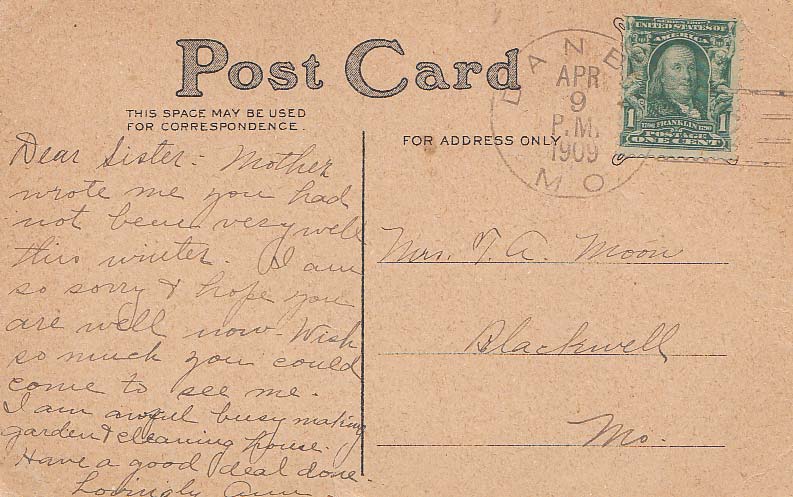 Post Card
THIS SPACE MAY BE USED
FOR CORRESPONDENCE.
FOR ADDRESS ONLY
DANB
APR
9
P.M.
1909
MO
SERIES 1902
UNITED STATES OF
AMERICA
1 1
1706 FRANKLIN 1790
POSTAGE
ONE CENT
Dear Sister:- Mother
wrote me you had
not been very well
this winter. I am
so sorry & hope you
are well now- Wish
so much you could
come to see me.
I am awful busy making
garden & cleaning house.
Have a good deal done.
Lovingly Ann.
Mrs. T. A. Moon
Blackwell
Mo.